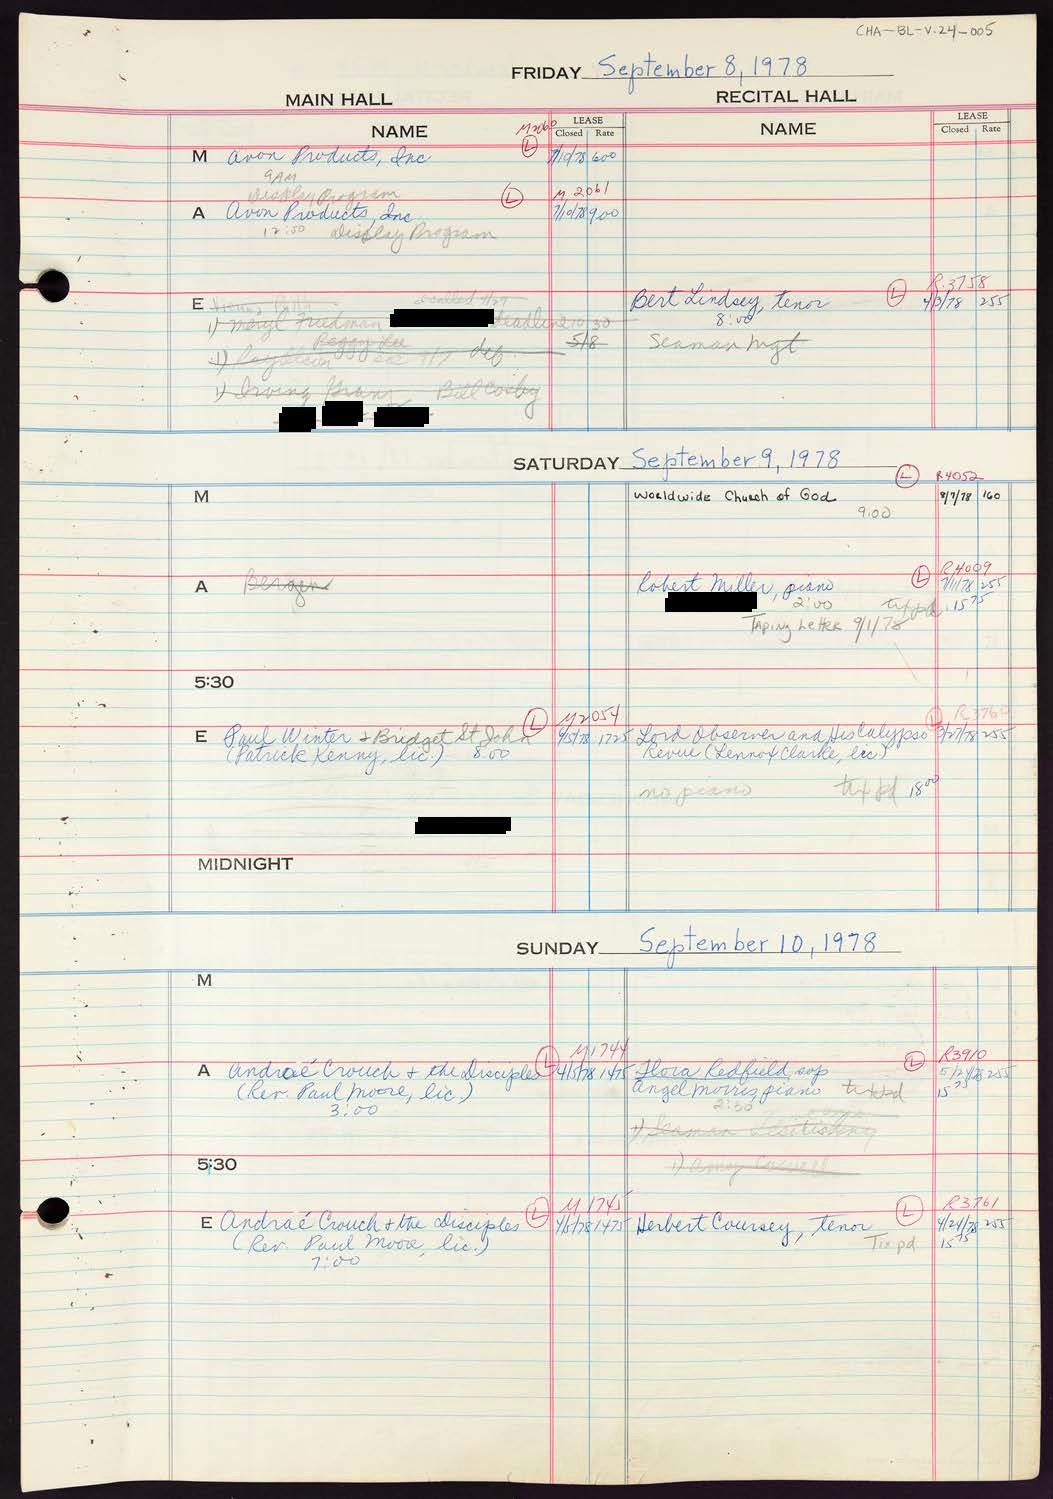 CHA-BL-V.24-005
FRIDAY September 8, 1978
MAIN HALL RECITAL HALL
NAME LEASE Closed Rate NAME LEASE Closed Rate
M2060
M Avon Products, Inc (L) 7/10/78 600
9AM
Display Program
(L) M 2061
A Avon Products, Inc 7/10/78 900
12:30 Display Program
(L) R3758
E Bert Lindsey, tenor 4/3/78 255
8:00
1) Meryl Friedman deadline 10 30
Peggy Lee 5/8 Seaman Mgt
def
1) Irving Bill Cosby
SATURDAY September 9, 1978
(L) R4052
M Worldwide Church of God 8/7/78 160
9:00
(L) R4009
A Bergen Robert Miller, piano 7/11/78 255
2:00 tix pd. 15 75
Taping Letter 9/1/78
5:30
(L) M2054 (L) R3760
E Paul Winter & Bridget St. John 9/5/78 1725 Lord Observer and His Calypso 4/27/78 255
(Patrick Kenny, lic.) 8:00 Revue (Lennox Clarke, lic)
no piano tix pd 18 00
MIDNIGHT
SUNDAY September 10, 1978
M
(L) M1744 (L) R3910
A Andraé Crouch & the Disciples 4/5/78 1475 Flora Redfield, sop 5/24/78 255
(Rev. Paul Moore, lic.) Angel Morris, piano tix pd 15 75
3:00 2:30
1) Seaman
5:30 1) Amoy
(L) M1745 (L) R3761
E Andraé Crouch & the Disciples 4/5/78 1475 Herbert Coursey, tenor 4/24/78 255
(Rev. Paul Moore, lic.) Tix pd 15 75
7:00